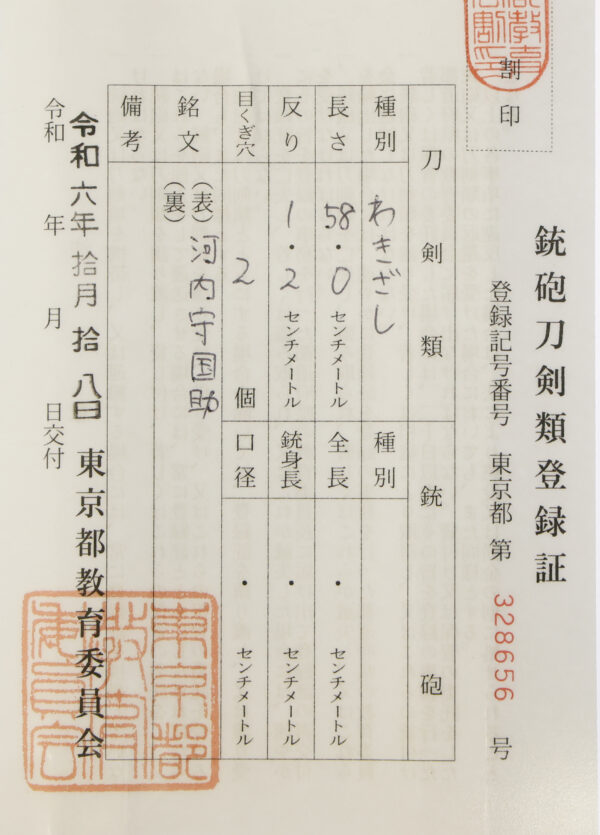 割印
銃砲刀剣類登録証
登録記号番号 東京都 第 328656 号
刀剣類
銃砲
種別 わきざし
種別
長さ 58.0 センチメートル
全長 ・ センチメートル
反り 1.2 センチメートル
銃身長 ・ センチメートル
目くぎ穴 2 個
口径 ・ センチメートル
銘文 (表) 河内守国助
(裏)
備考
令和六年拾月拾八日 東京都教育委員会
令和 年 月 日交付
東京都教育委員会